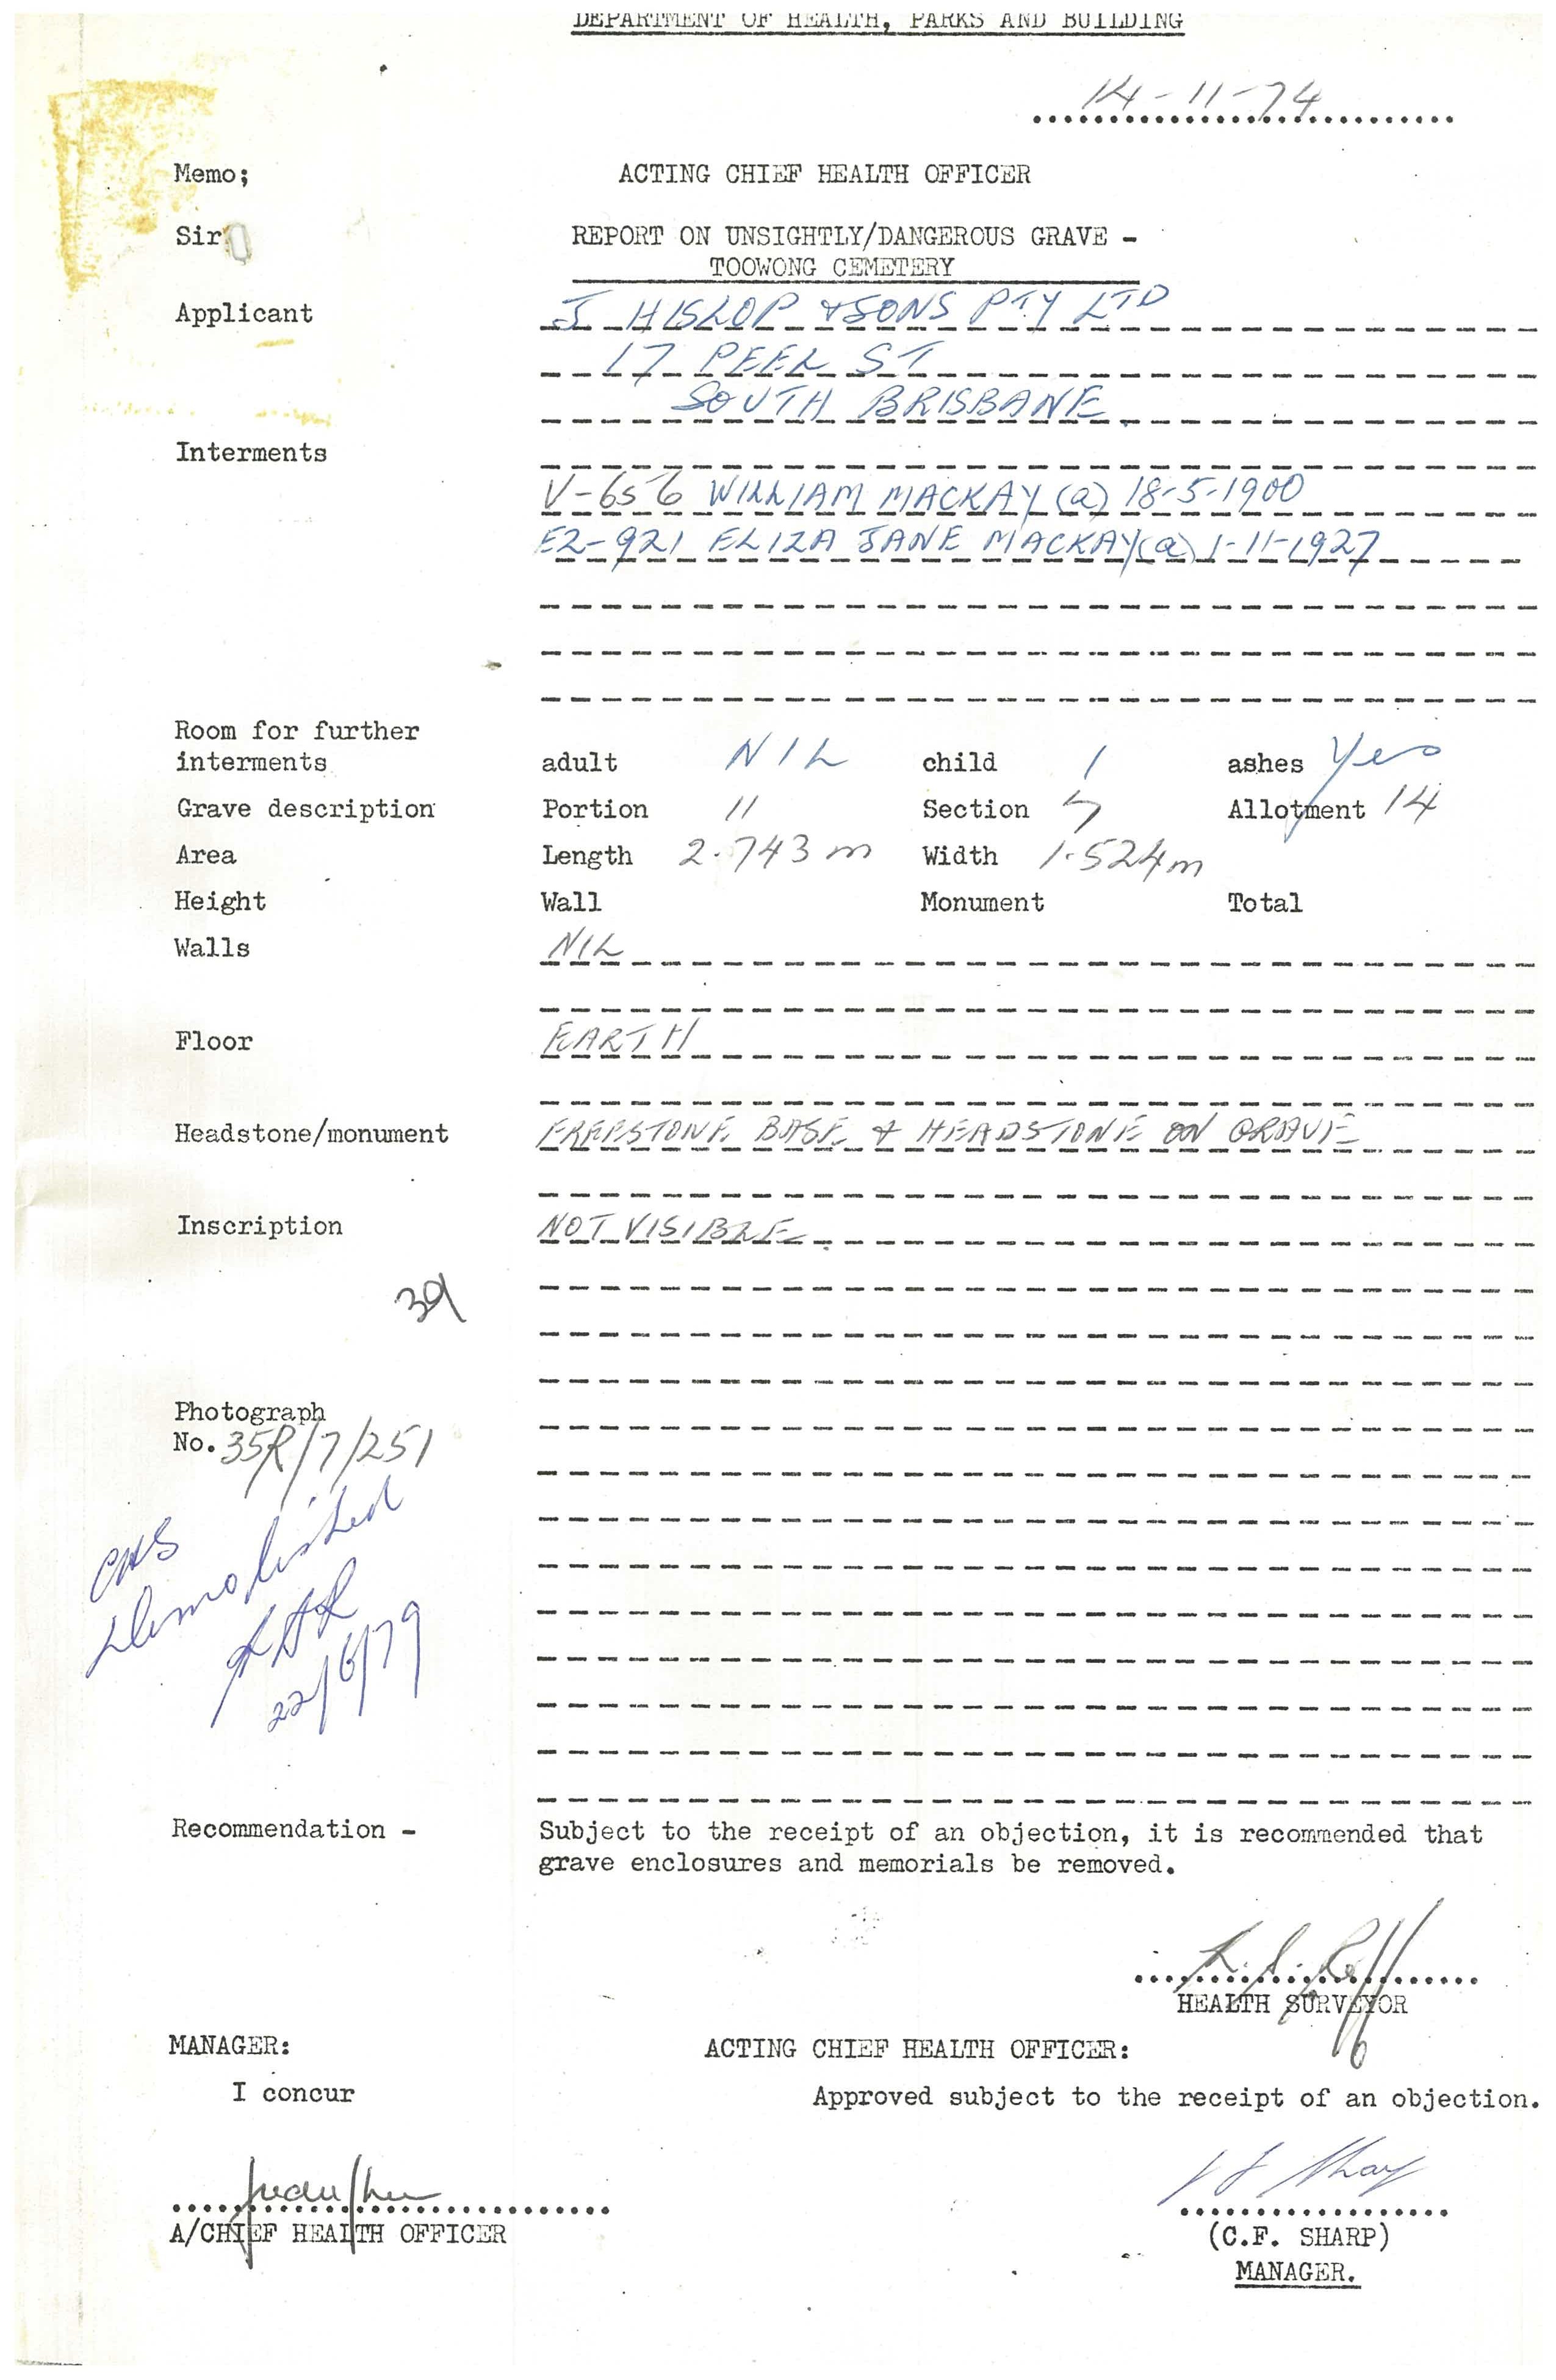 DEPARTMENT OF HEALTH, PARKS AND BUILDING
14-11-74
Memo; ACTING CHIEF HEALTH OFFICER
Sir REPORT ON UNSIGHTLY/DANGEROUS GRAVE -
TOOWONG CEMETERY
Applicant J HISLOP & SONS PTY LTD
17 PEEL ST
SOUTH BRISBANE
Interments
V-656 WILLIAM MACKAY (a) 18-5-1900
E2-921 ELIZA JANE MACKAY (a) 1-11-1927
Room for further
interments adult NIL child 1 ashes Yes
Grave description Portion 11 Section 7 Allotment 14
Area Length 2.743 m Width 1.524m
Height Wall Monument Total
Walls NIL
Floor EARTH
Headstone/monument FREESTONE BASE & HEADSTONE ON GRAVE
Inscription NOT VISIBLE
39
Photograph
No. 35R/7/251
Demolished
22/6/79
Recommendation - Subject to the receipt of an objection, it is recommended that
grave enclosures and memorials be removed.
HEALTH SURVEYOR
MANAGER: ACTING CHIEF HEALTH OFFICER:
I concur Approved subject to the receipt of an objection.
A/CHIEF HEALTH OFFICER (C.F. SHARP)
MANAGER.